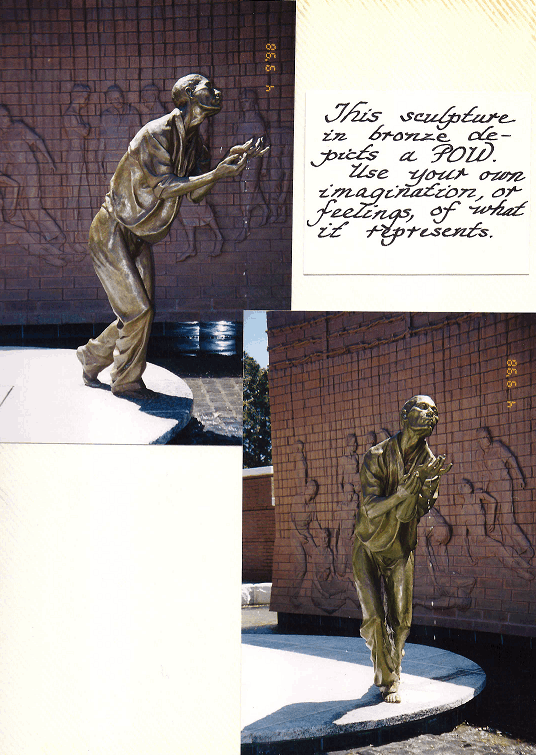 4 5'98
This sculpture
in bronze de-
picts a POW.
Use your own
imagination, or
feelings, of what
it represents.
4 5'98